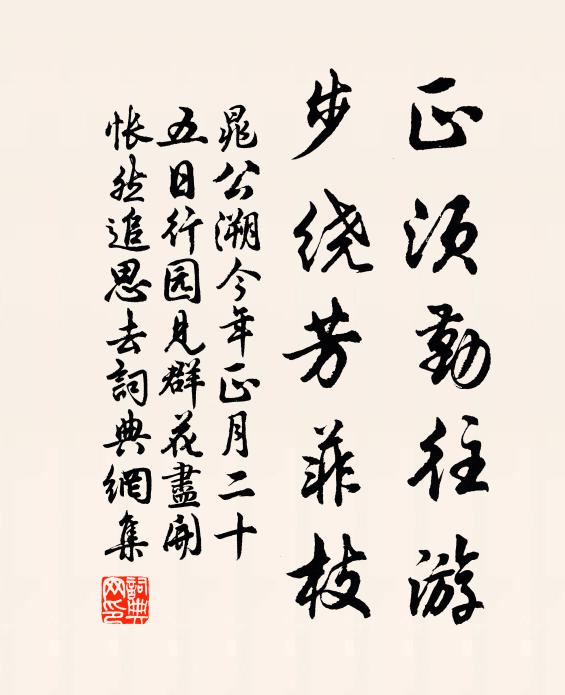 正须勤往游
步绕芳菲枝
晁公溯今年正月二十
五日行园见群花盡開
怅然追思去詞典網集
詞典网印